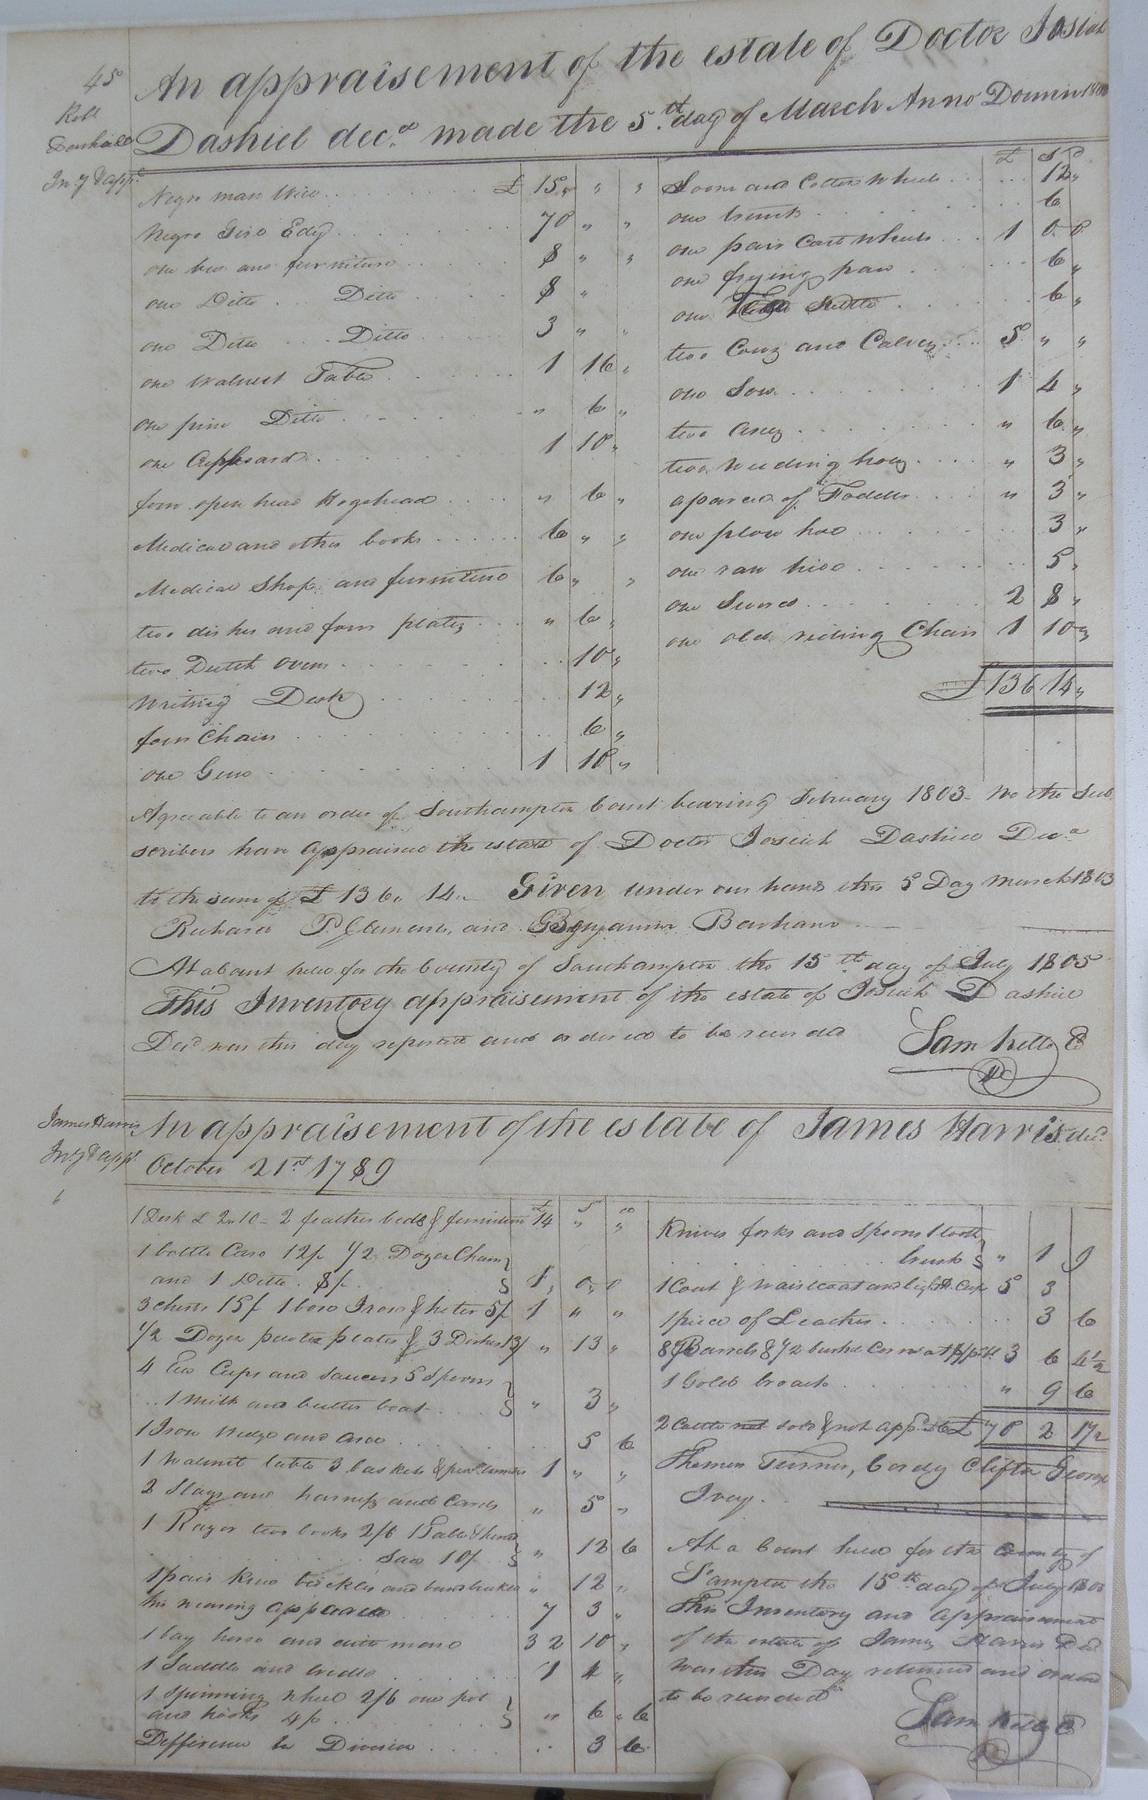 45
An appraisement of the estate of Doctor Josiah
Dashiel decd made the 5th day of March Anno Domini
Invy & appt
Negro man Will £ 15 " "
Negro Girl Edy 70 " "
one bed and furniture 8 " "
one Ditto Ditto 8 "
one Ditto Ditto 3 " "
one walnut Table 1 16 "
one pine Ditto " 6 "
one Cupboard 1 10 "
four open head Hogshead " 6 "
Medical and other books 6 " "
Medical Shop and furniture 6 " "
two dishes and four plates " 6 "
two Dutch ovens 10 "
Writing Desk 12 "
four Chairs 6 "
one Gun 1 10 "
Loom and Cotton Wheel 12 "
one trunk 6
one pair Cart wheels 1 0 0
one frying pan 6 "
one Kettle 6 "
two Cows and Calves 5 " "
one Sow 1 4 "
two axes " 6 "
two weeding hoes " 3 "
a parcel of Fodder " 3 "
one plow hoe 3 "
one raw hide 5 "
one Sword 2 8 "
one old riding Chair 1 10 "
£ 136 14 "
Agreeable to an order of Southampton Court bearing February 1803 We the Sub
scribers have appraised the estate of Doctor Josiah Dashiel Decd
to the sum of £ 136 " 14 " Given under our hands this 5 Day March 1803
Richard P. Clements, and Benjamin Barham
At a Court held for the County of Southampton the 15th day of July 1805
This Inventory appraisement of the estate of Josiah Dashiel
Decd was this day reported and ordered to be recorded
Sam Kello C
James Harris
Invy & appt
An appraisement of the estate of James Harris decd
October 21st 1789
1 Desk £ 2 " 10 - 2 feather beds & furniture £ 14 " "
1 bottle Case 12/ 1/2 Dozen Chairs
and 1 Ditto 8/ 1 " 0 " 0
3 chests 15/ 1 box Iron & heters 5/ 1 " "
1/2 Dozen pewter plates & 3 Dishes 13/ " 13 "
4 Tea Cups and saucers 5 spoons
1 milk and butter boat " 3 "
1 Iron wedge and 5 6
1 walnut table 3 baskets & 1 " "
2 Slays and harness and Cards " 5 "
1 Razor two books 2/6 1 Table & hand
Saw 10/ " 12 6
1 pair knee buckles and " 12 "
his wearing apparel 7 3 "
1 bay horse and ditto mare 32 10 "
1 Saddle and bridle 1 4 "
1 Spinning wheel 2/6 one pot
and hooks 4/ " 6 " 6
Difference in Division 3 6
Knives forks and spoons 1 tooth
brush " 1 9
1 Coat & waistcoat and 5 3
1 piece of Leather 3 6
8 Barrels & 1/2 bushel Corn at 3 6 4 1/2
1 Gold broach " 9 6
2 Cattle not sold & not appd £ 78 2 1 1/2
Thomas Turner, Cordy Clifton George
Ivey.
At a Court held for the County of
Sampton the 15th day of July 1805
This Inventory and appraisement
of the estate of James Harris Decd
was this Day returned and ordered
to be recorded
Sam Kello C